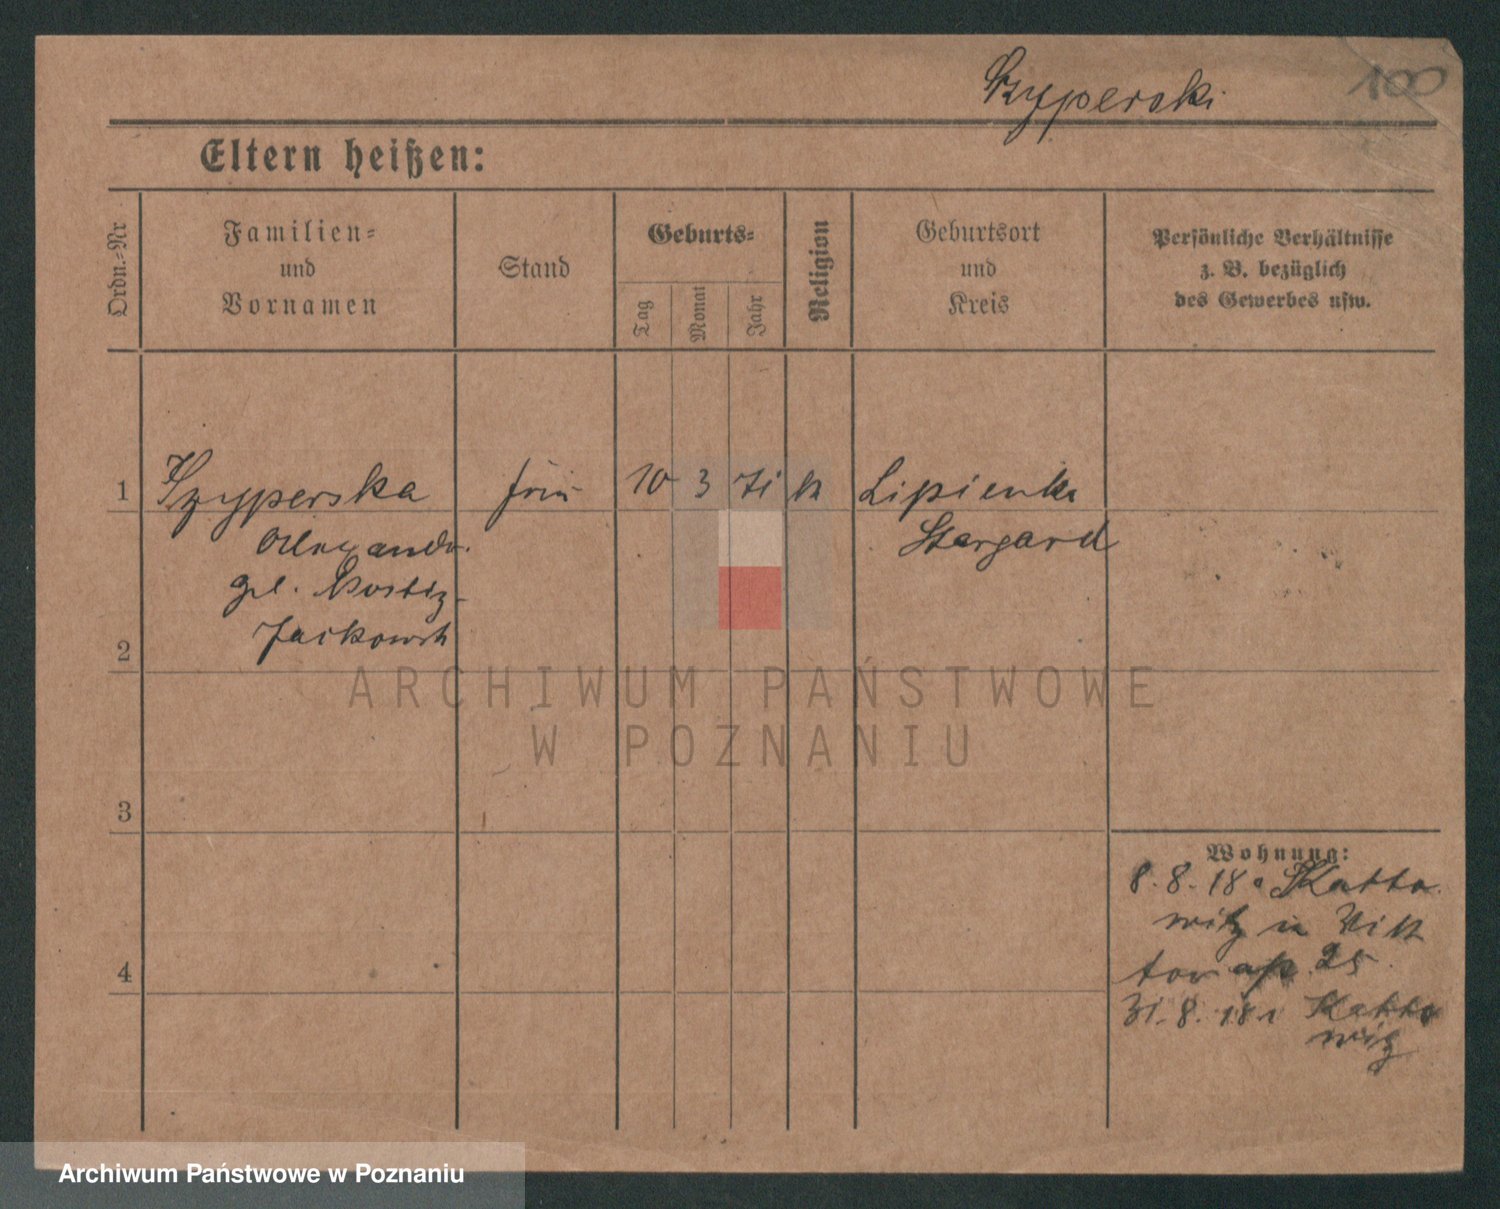 Szyperski
100
Eltern heißen:
Ordn.-Nr
Familien-
und
Vornamen
Stand
Geburts-
Tag
Monat
Jahr
Religion
Geburtsort
und
Kreis
Persönliche Verhältnisse
z. B. bezüglich
des Gewerbes usw.
1 Szyperska 10 3 71 k Lipienki
Stargard
2
3
4
ARCHIWUM PAŃSTWOWE
W POZNANIU
Wohnung:
8.8.18 Katto
witz Vik
tor 25
31.8.18 Katto
witz
Archiwum Państwowe w Poznaniu